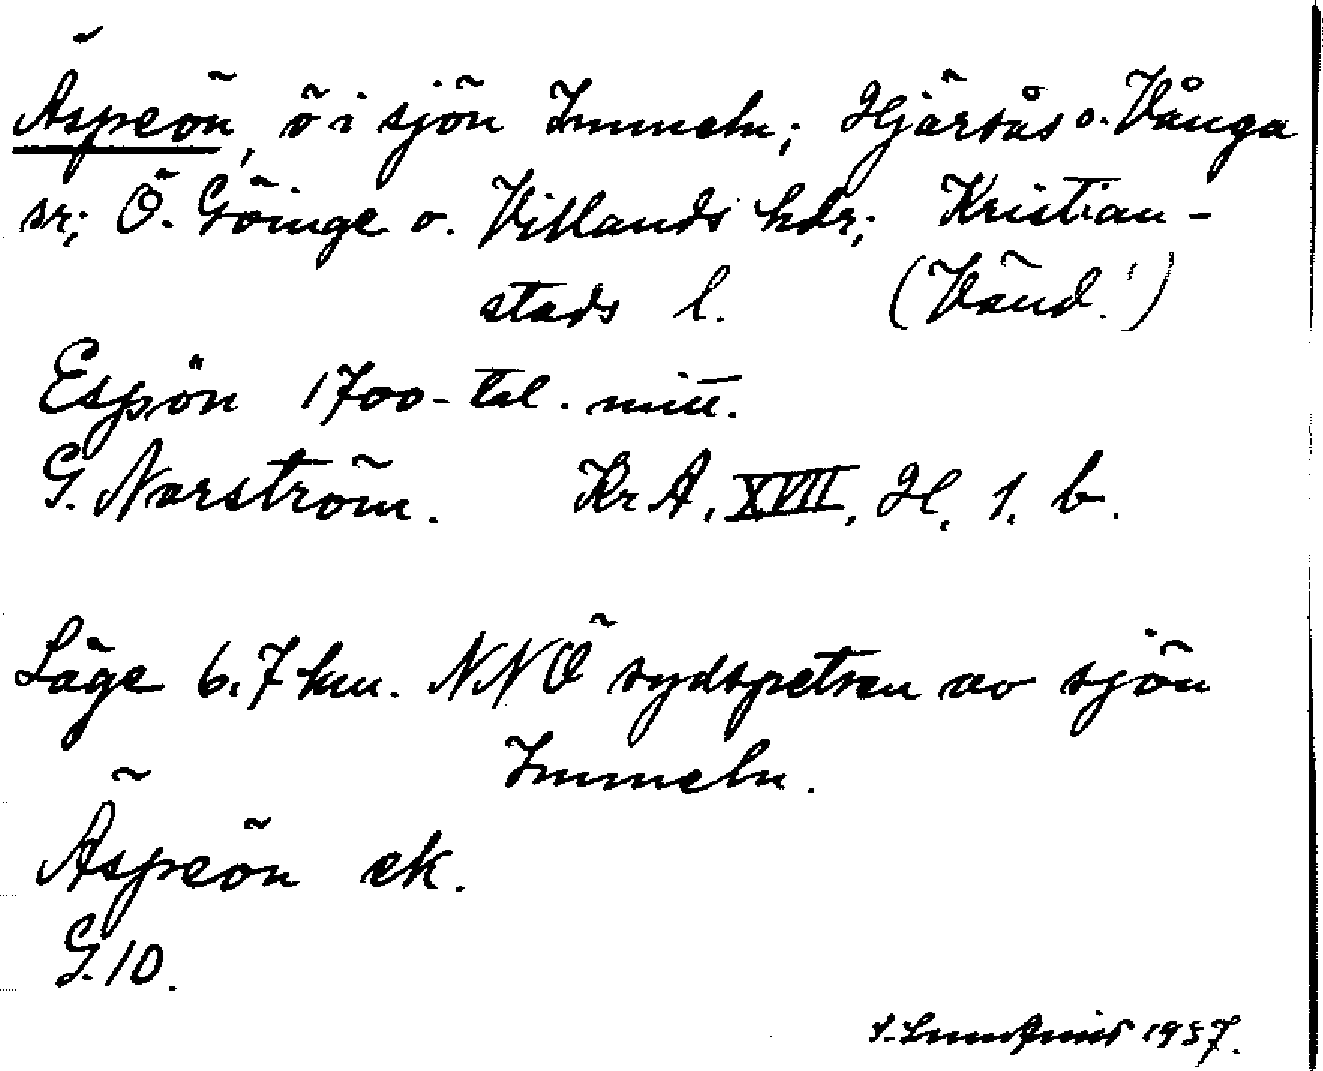 Äspeön, ö i sjön Immeln; Hjärsås o. Vånga
sr; Ö. Göinge o. Villands hdr; Kristian-
stads l. (Vänd!)
Espön 1700-tal. mitt.
G. Norström. Kr A, XVII, H, 1, b.
Läge 6.7 km. NNÖ sydspetsen av sjön
Immeln.
Äspeön ek.
G. 10.
S. Lundquist 1937.